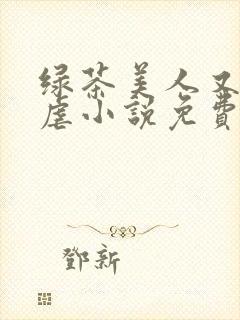 绿茶美人又
虐小説免費
鄧新